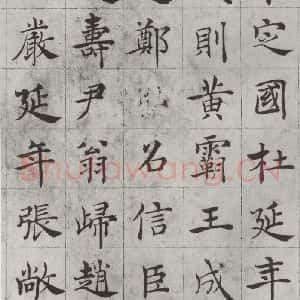 定國杜延年
則黃霸王成
鄭名信臣
壽尹翁歸趙
嚴延年張敞
Shufawang.CN